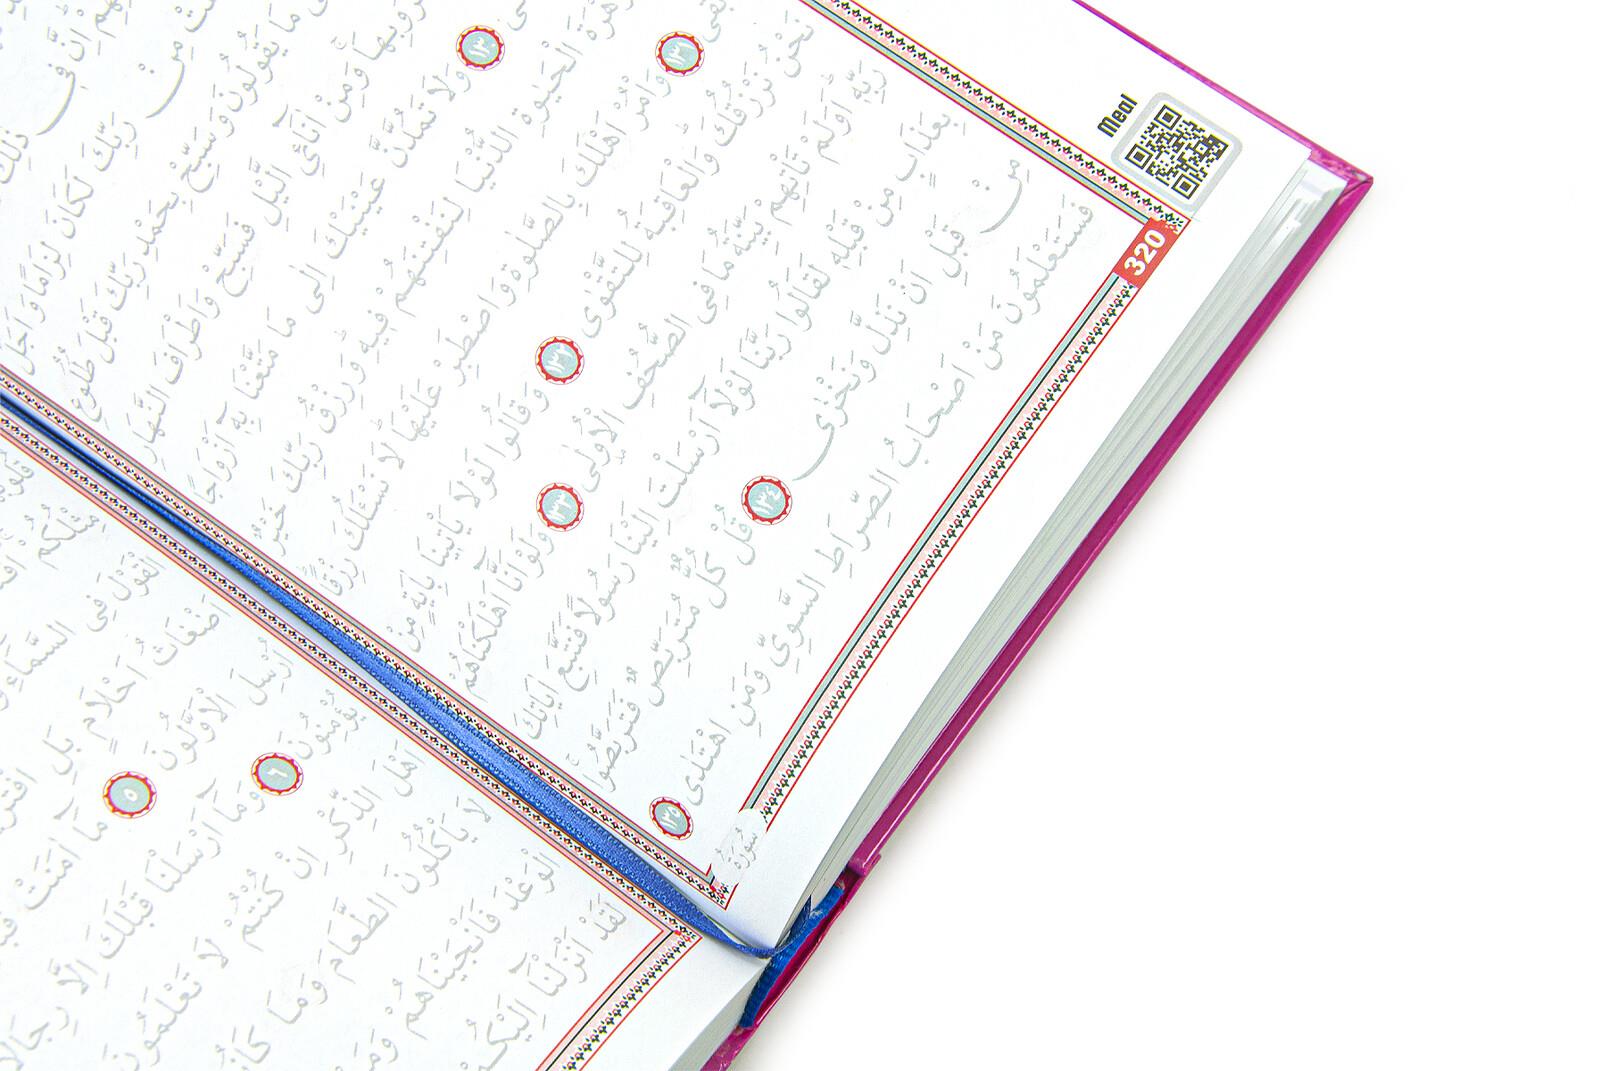 Meal
320
اِنَّ فِي ذٰلِكَ
مِنْ رَبِّكَ لَكَانَ لِزَامًا وَاَجَلٌ
مَا يَقُولُونَ وَسَبِّحْ بِحَمْدِ رَبِّكَ قَبْلَ طُلُوعِ
وَمِنْ اٰنَآئِ الَّيْلِ فَسَبِّحْ وَاَطْرَافَ النَّهَارِ
١٣٠ وَلَا تَمُدَّنَّ عَيْنَيْكَ اِلٰى مَا مَتَّعْنَا بِهٖ اَزْوَاجًا
زَهْرَةَ الْحَيٰوةِ الدُّنْيَا لِنَفْتِنَهُمْ فِيهِ وَرِزْقُ رَبِّكَ خَيْرٌ
١٣١ وَاْمُرْ اَهْلَكَ بِالصَّلٰوةِ وَاصْطَبِرْ عَلَيْهَا لَا نَسْـَٔلُكَ رِزْقًا
نَحْنُ نَرْزُقُكَ وَالْعَاقِبَةُ لِلتَّقْوٰى ١٣٢ وَقَالُوا لَوْلَا يَاْتِينَا بِاٰيَةٍ مِنْ
رَبِّهٖ اَوَلَمْ تَاْتِهِمْ بَيِّنَةُ مَا فِى الصُّحُفِ الْاُولٰى ١٣٣ وَلَوْ اَنَّآ اَهْلَكْنَاهُمْ
بِعَذَابٍ مِنْ قَبْلِهٖ لَقَالُوا رَبَّنَا لَوْلَآ اَرْسَلْتَ اِلَيْنَا رَسُولًا فَنَتَّبِعَ اٰيَاتِكَ
مِنْ قَبْلِ اَنْ نَذِلَّ وَنَخْزٰى ١٣٤ قُلْ كُلٌّ مُتَرَبِّصٌ فَتَرَبَّصُوا
فَسَتَعْلَمُونَ مَنْ اَصْحَابُ الصِّرَاطِ السَّوِيِّ وَمَنِ اهْتَدٰى ١٣٥
سُورَةُ
مِثْلُكُمْ
الْقَوْلَ فِى السَّمَآءِ
اَضْغَاثُ اَحْلَامٍ بَلِ
اُرْسِلَ الْاَوَّلُونَ ٥ مَآ اٰمَنَتْ
يُؤْمِنُونَ ٦ وَمَآ اَرْسَلْنَا قَبْلَكَ اِلَّا رِجَالًا
اَهْلَ الذِّكْرِ اِنْ كُنْتُمْ لَا تَعْلَمُونَ
لَا يَاْكُلُونَ الطَّعَامَ وَمَا
الْوَعْدَ فَاَنْجَيْنَاهُمْ وَمَنْ
لَقَدْ اَنْزَلْنَآ اِلَيْكُمْ